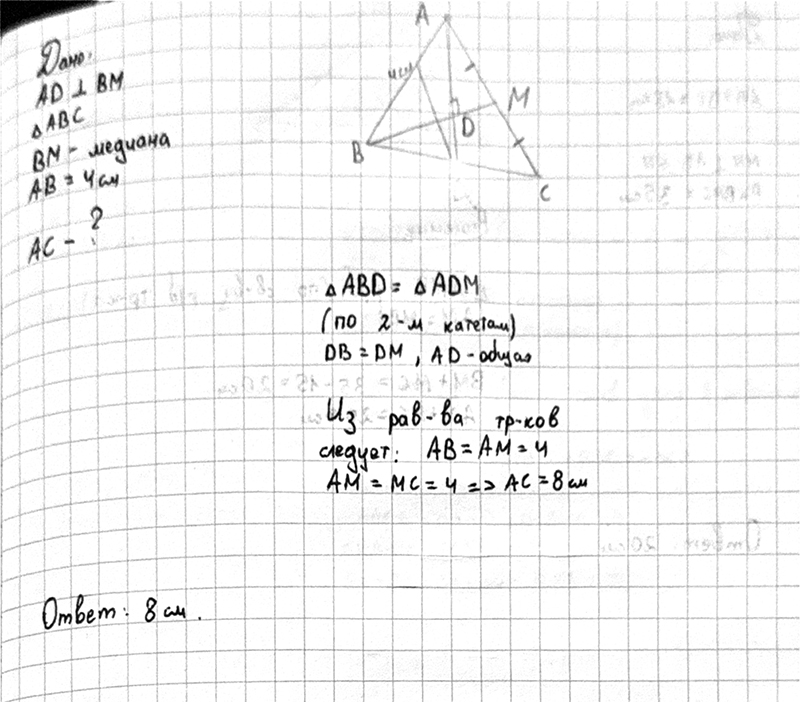 Дано:
AD ⊥ BM
△ABC
BM - медиана
AB = 4 см
AC - ?
A
4 см
M
D
B
C
△ABD = △ADM
(по 2-м катетам)
DB = DM, AD - общая
Из рав-ва тр-ков
следует: AB = AM = 4
AM = MC = 4 => AC = 8 см
Ответ: 8 см.